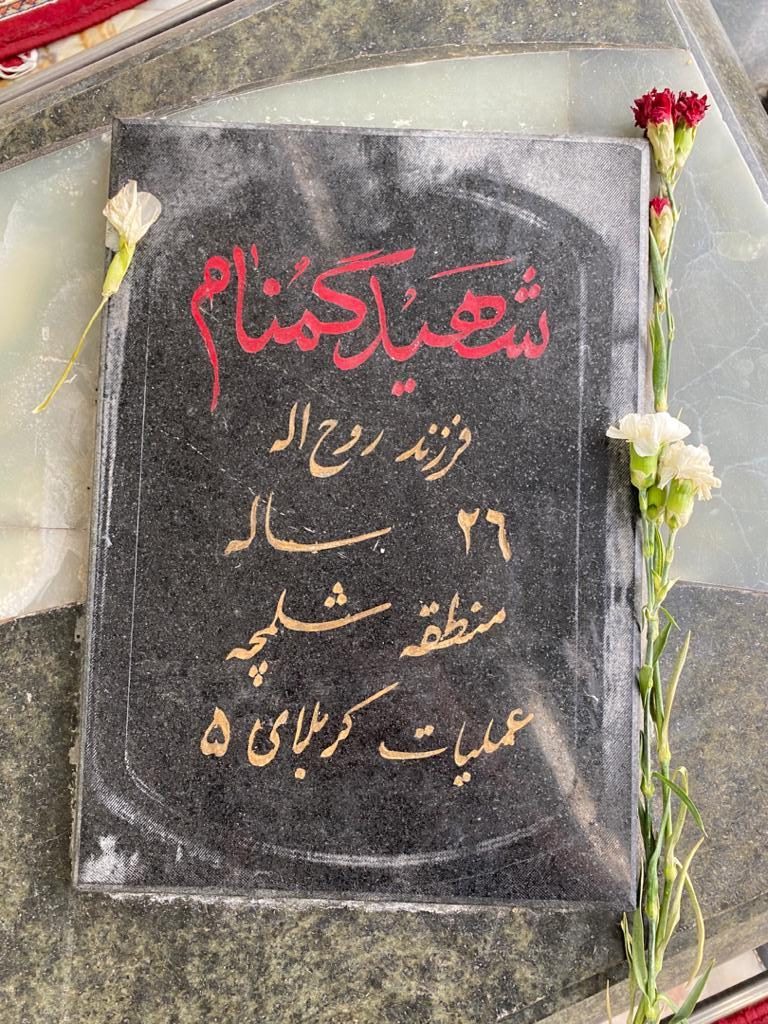 شهید گمنام
فرزند روح اله
٢٦ ساله
منطقه شلمچه
عملیات کربلای ۵